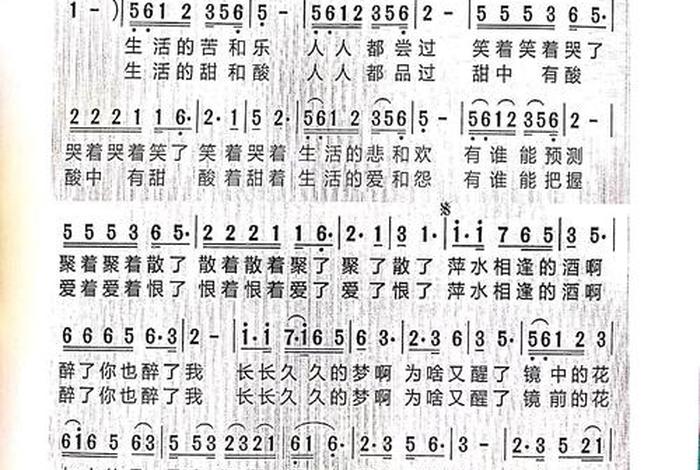 1 - ) | 561 2 356 | 5 - | 5612 356 | 2 - | 5 5 5 3 6 5·
生活的苦和乐 人人都尝过 笑着笑着哭了
生活的甜和酸 人人都品过 甜中 有酸
2 2 2 1 1 6· | 2· 1 | 5 2· | 561 2 356 | 5 - | 5612 356 | 2 - |
哭着哭着笑了 笑着哭着 生活的悲和欢 有谁能预测
酸中 有甜 酸着甜着 生活的爱和怨 有谁能把握
5 5 5 3 6 5· | 2 2 2 1 1 6· | 2· 1 | 3 1· | i·i 7 6 5 | 3 5· |
聚着聚着散了 散着散着聚了 聚了散了 萍水相逢的酒啊
爱着爱着恨了 恨着恨着爱了 爱了恨了 萍水相逢的酒啊
6 6 6 5 6·3 | 2 - | i·i 7·i6 5 | 6 3· | 2·3 6 | 3 5· | 561 2 3 |
醉了你也醉了我 长长久久的梦啊 为啥又醒了 镜中的花
醉了你也醉了我 长长久久的梦啊 为啥又醒了 镜前的花
6i6 5 63 | 5 53 2321 | 61 6· | 2·3 5 6· | 3 - | 2·3 5 21 |